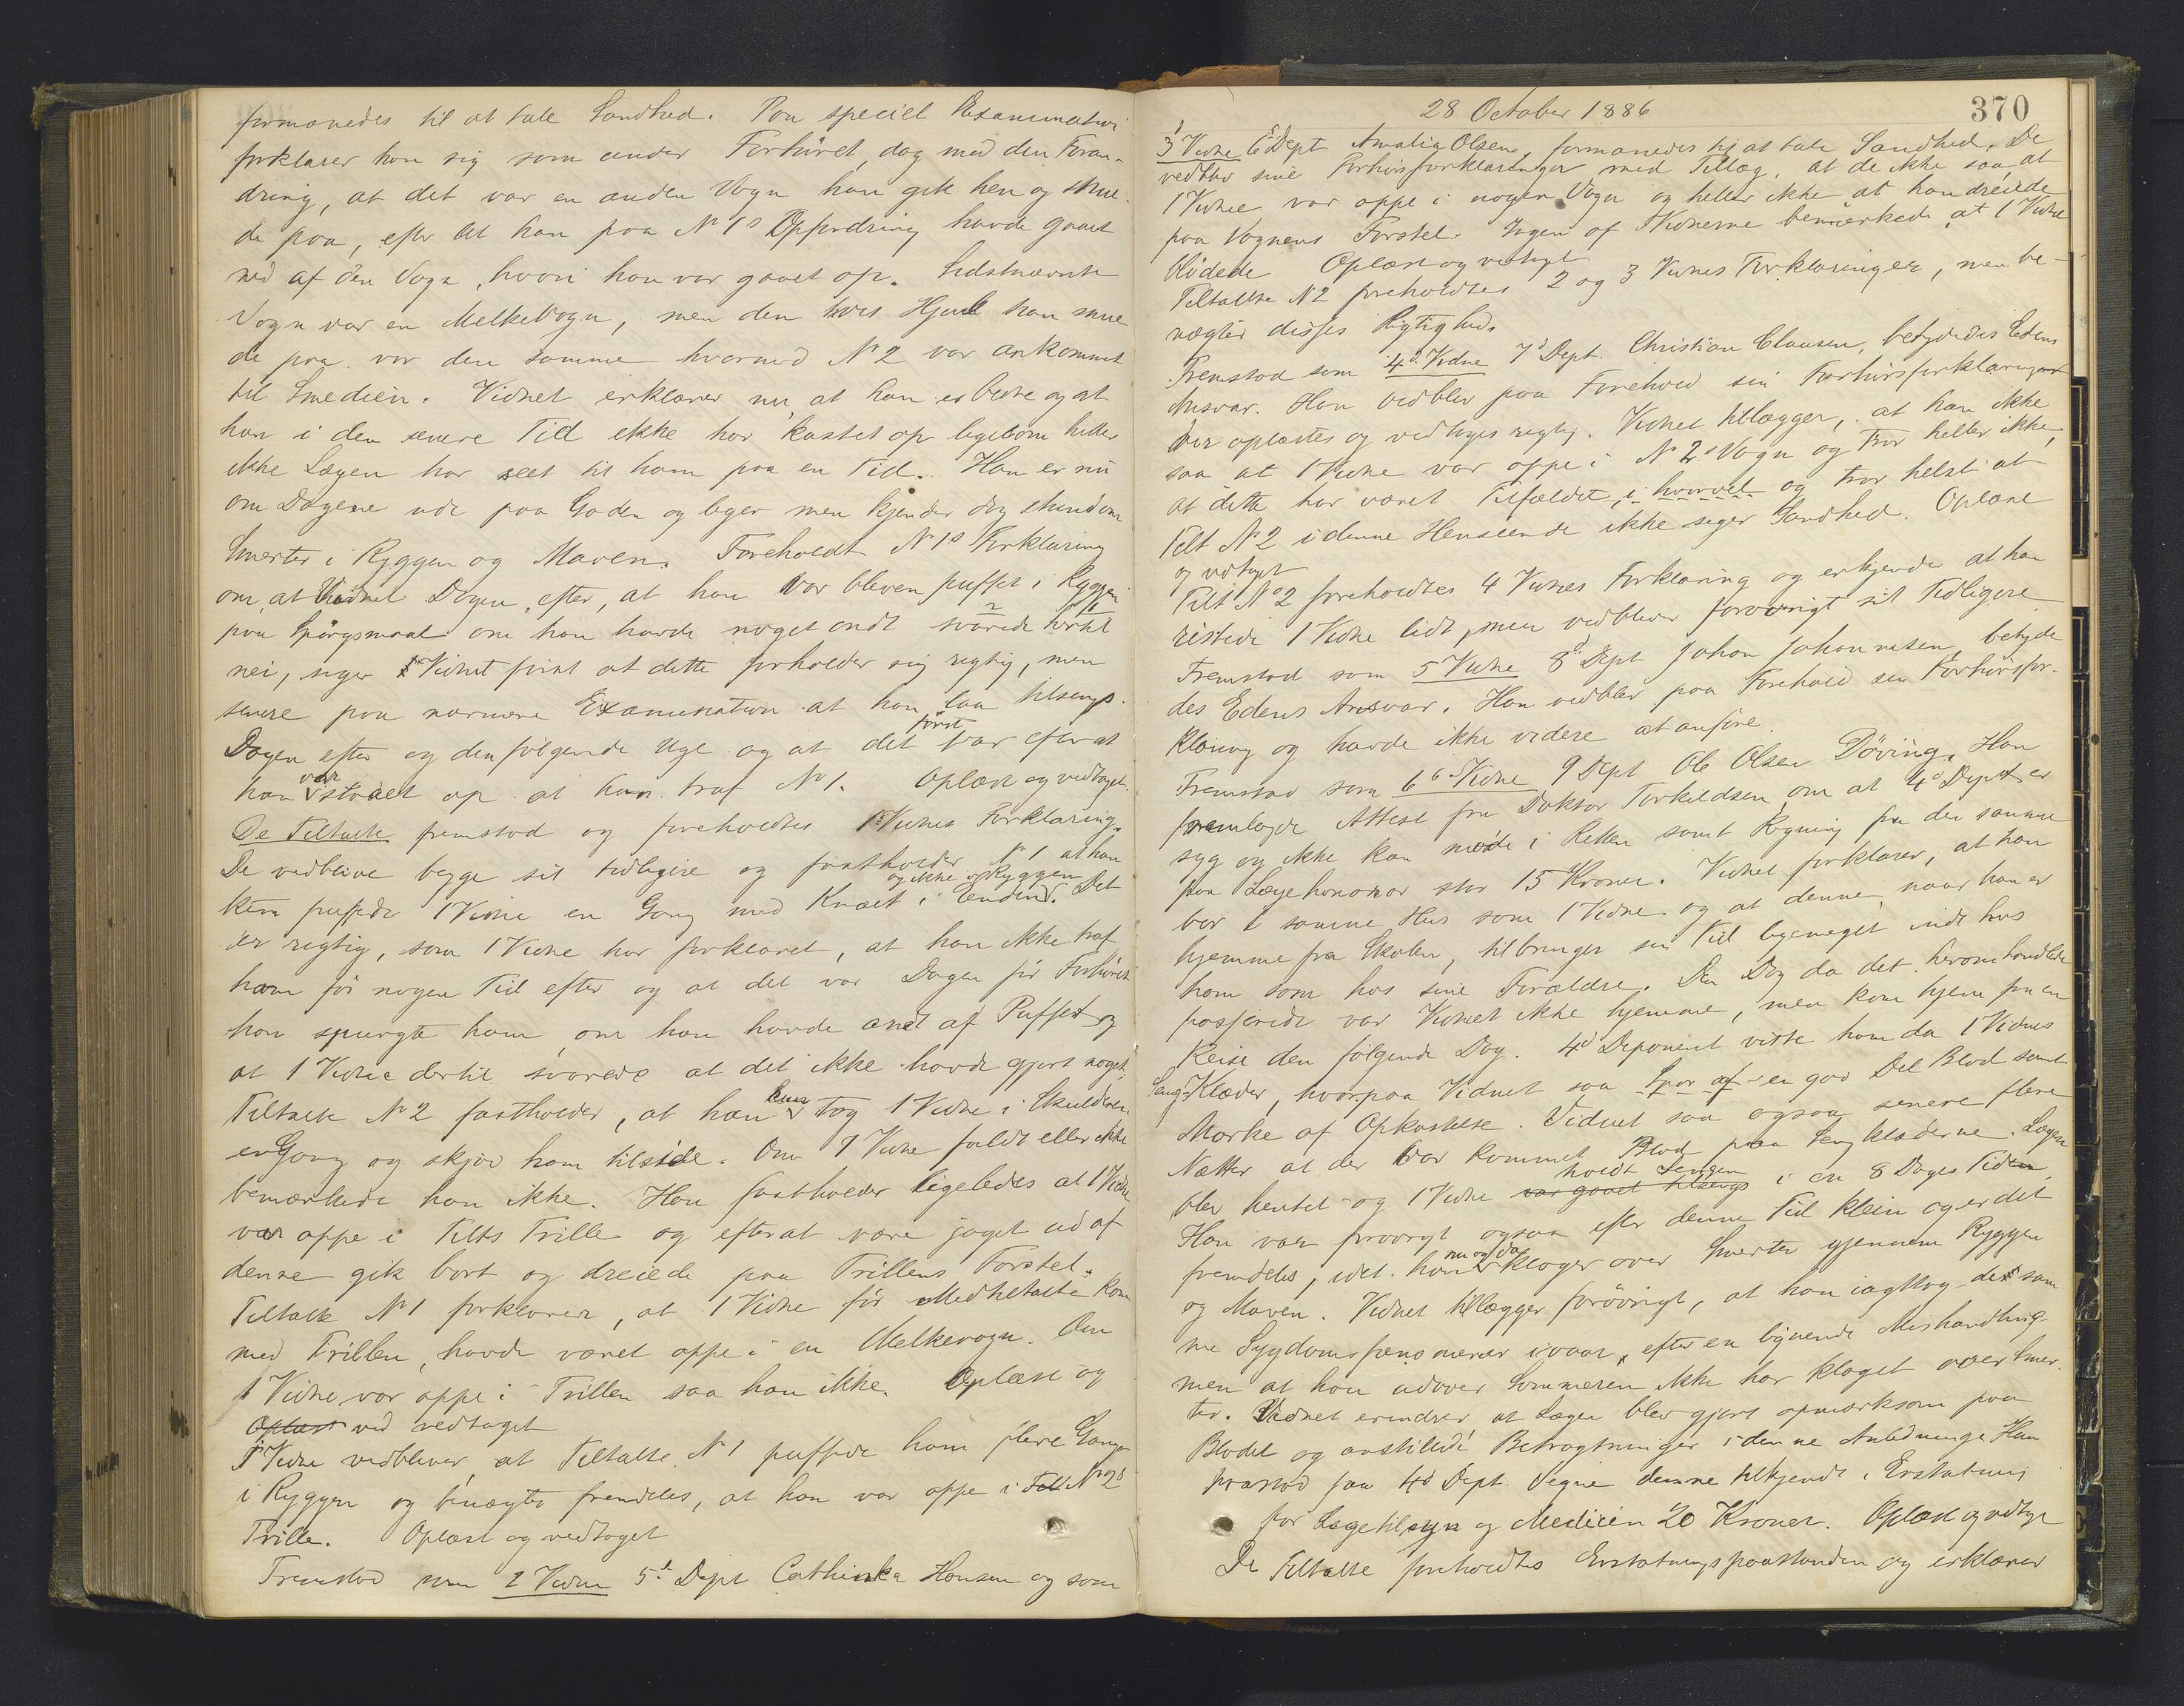 formanedes til at tale Sandhed. Paa speciel Examination
forklarer han sig som under Forhöret dog med den Foran-
dring, at det var en anden Vogn han gik hen og skrue-
de paa, efter at han paa No 1s Opfordring havde gaaet
ned af den Vogn, hvori han var gaaet op. Sidstnævnte
Vogn var en Melkevogn, men den hvis Hjul han skrue
de paa var den samme hvormed No 2 var ankommet
til Smedien. Vidnet erklærer nu at han er bedre og at
han i den senere Tid ikke har kastet op ligesom heller
ikke Lægen har seet til ham paa en Tid. Han er nu
om Dagene ude paa Gaden og leger men kjender dog stundom
Smerter i Ryggen og Maven. Foreholdt No 1s Forklaring
om, at Vidnet Dagen efter, at han var bleven puffet i Ryggen
paa Spörgsmaal om han havde noget ondt svarede
nei, siger Vidnet först at dette forholder sig rigtig, men
senere paa nærmere Examination at han laa tilsengs
Dagen efter og den fölgende Uge og at det först var efter at
han var staaet op at han traf No 1. Oplæst og vedtaget.
De Tiltalte fremstod og foreholdtes 1 Vidnes Forklaring.
De vedblive begge sit tidligere og fastholder No 1 at han
kun puffede 1 Vidne en Gang med Knæet i Enden og ikke i Ryggen. Det
er rigtig, som 1 Vidne har forklaret, at han ikke traf
ham för nogen Tid efter og at det var Dagen för Forhöret
han spurgte ham, om han havde ondt af Puffet og
at 1 Vidne dertil svarede at det ikke havde gjort noget.
Tiltalte No 2 fastholder, at han kun tog 1 Vidne i Skulderen
en Gang og skjöv ham tilside. Om 1 Vidne faldt eller ikke
bemærkede han ikke. Han fastholder ligeledes at 1 Vidne
var oppe i Tilts Trille og efterat være jaget ud af
denne gik bort og dreiede paa Trillens Forstel.
Tiltalte No 1 forklarer, at 1 Vidne för Medtiltalte kom
med Trillen, havde været oppe i en Melkevogn. Om
1 Vidne var oppe i Trillen saa han ikke. Oplæst og
Oplæst ved vedtaget
1 Vidne vedbliver at Tiltalte No 1 puffede ham flere Gange
i Ryggen og benægter fremdeles, at han var oppe i Tilt No 2s
Trille. Oplæst og vedtaget
Fremstod som 2 Vidne 5t Dept Cathinka Hansen og som
28 October 1886
370
3 Vidne 6 Dept Amalia Olsen, formanedes til at tale Sandhed. De
vedblev sine Forhörsforklaringer med Tillæg, at de ikke saa, at
1 Vidne var oppe i nogen Vogn og heller ikke at han dreiede
paa Vognens Forstel. Ingen af Vidnerne bemærkede at 1 Vidne
blödede Oplæst og vedtaget
Tiltalte No 2 foreholdtes 2 og 3 Vidnes Forklaringer, men be-
nægter disses Rigtighed.
Fremstod som 4d Vidne 7d Dept. Christian Clausen, betydedes Edens
Ansvar. Han vedblev paa Forehold sin Forhörsforklaring
der oplæstes og vedtoges rigtig. Vidnet tillægger, at han ikke
saa at 1 Vidne var oppe i No 2s Vogn og tror heller ikke,
at dette har været Tilfældet, i hvorvel og tror helst at
Tilt No 2 i denne Henseende ikke siger Sandhed. Oplæst
og vedtaget
Tilt No 2 foreholdtes 4 Vidnes Forklaring og erkjende at han
ristede 1 Vidne lidt, men vedbliver forövrigt sit Tidligere.
Fremstod som 5 Vidne 8d Dept Johan Johannesen, betyde
des Edens Ansvar. Han vedblev paa Forehold sin Forhörsfor-
klaring og havde ikke videre at anföre.
Fremstod som 6 Vidne 9 Dept Ole Olsen Döving. Han
fremlagde Attest fra Doktor Torkildsen om at 4d Dept er
syg og ikke kan möde i Retten samt Regning fra den samme
paa Lægehonorar stor 15 Kroner. Vidnet forklarer, at han
bor i samme Hus som 1 Vidne og at denne, naar han er
hjemme fra Skolen, tilbringer sin Tid ligemeget inde hos
ham som hos sine Forældre. Den Dag da det heromhandlede
passerede var Vidnet ikke hjemme, men kom hjem fra en
Reise den fölgende Dag. 4d Deponent viste ham da 1 Vidnes
SengKlæder, hvorpaa Vidnet saa Spor af en god Del Blod samt
Mærke af Opkastelse. Vidnet saa ogsaa senere flere
Nætter at der var kommet Blod paa Sengklæderne. Lægen
blev hentet og 1 Vidne var gaaet tilsengs holdt Sengen i en 8 Dages Tid
Han var forövrigt ogsaa efter denne Tid klein og er det
fremdeles, idet han nu og da klager over Smerter gjennem Ryggen
og Maven. Vidnet tillægger forövrigt, at han iagttog de sam
me Sygdomsfænomener ivaar, efter en lignende Mishandling
men at han udover Sommeren ikke har klaget over Smer-
ter. Vidnet erindrer at Lægen blev gjort opmærksom paa
Blodet og anstillede Betragtninger i denne Anledning. Han
paastod paa 4d Dept Vegne denne tilkjendt i Erstatning
for Lægetilsyn og Medicin 20 Kroner. Oplæst og vedtaget
De Tiltalte foreholdtes Erstatningspaastanden og erklærer